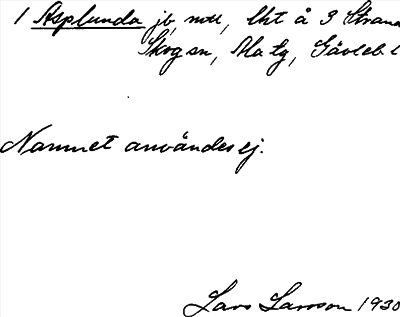 1 Asplunda jb, nutt, lht å 3 Strand
Skog sn, Ala tg, Gävleb. l
Namnet användes ej.
Lars Larsson 1930